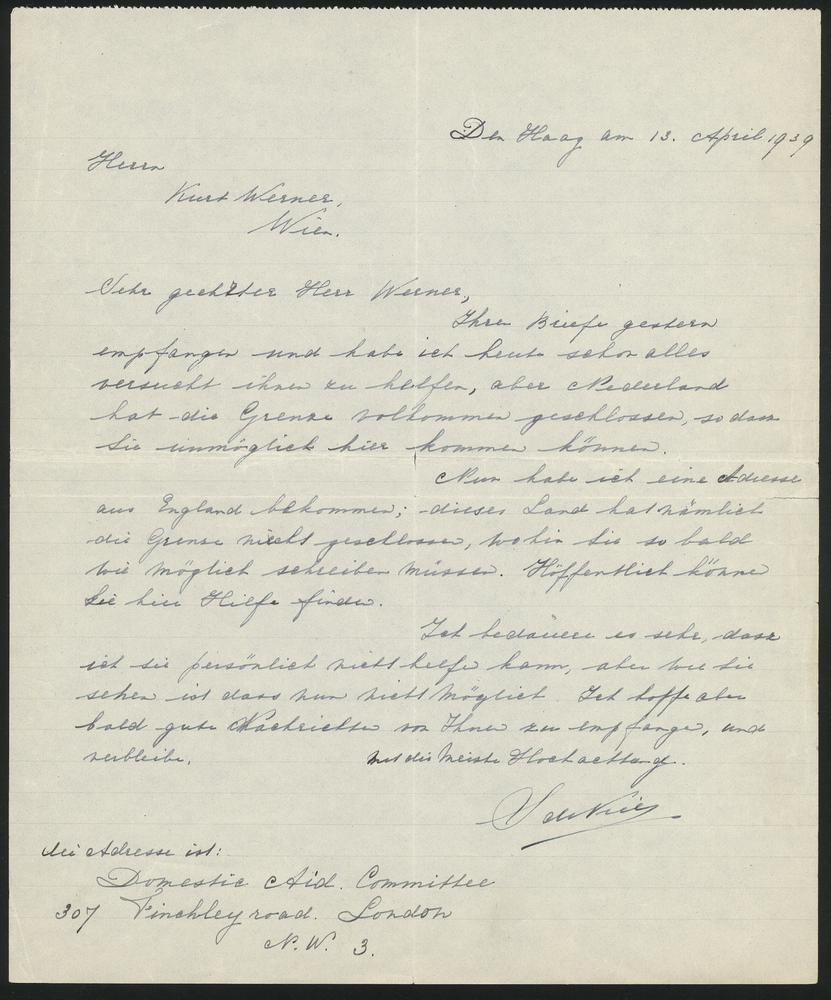 Den Haag am 13. April 1939
Herrn
Kurt Werner,
Wien.
Sehr geehrter Herr Werner,
Ihre Briefe gestern
empfangen und habe ich heute schon alles
versucht ihnen zu helfen, aber Nederland
hat die Grenze volkommen geschlossen, so dass
Sie unmöglich hier kommen können.
Nun habe ich eine Adresse
aus England bekommen; dieses Land hat nämlich
die Grenze nicht geschlossen, wohin Sie so bald
wie möglich schreiben müssen. Höffentlich könne
Sie hier Hilfe finden.
Ich bedauere es sehr, dass
ich sie persönlich nicht helfe kann, aber wie Sie
sehen ist dass nun nicht möglich. Ich hoffe aber
bald gute Nachrichte von Ihnen zu empfange, und
verbleibe,
Mit die Meiste Hochachtung.
S de Vries
Die Adresse ist:
Domestic Aid. Committee
307 Finchley road. London
N.W. 3.